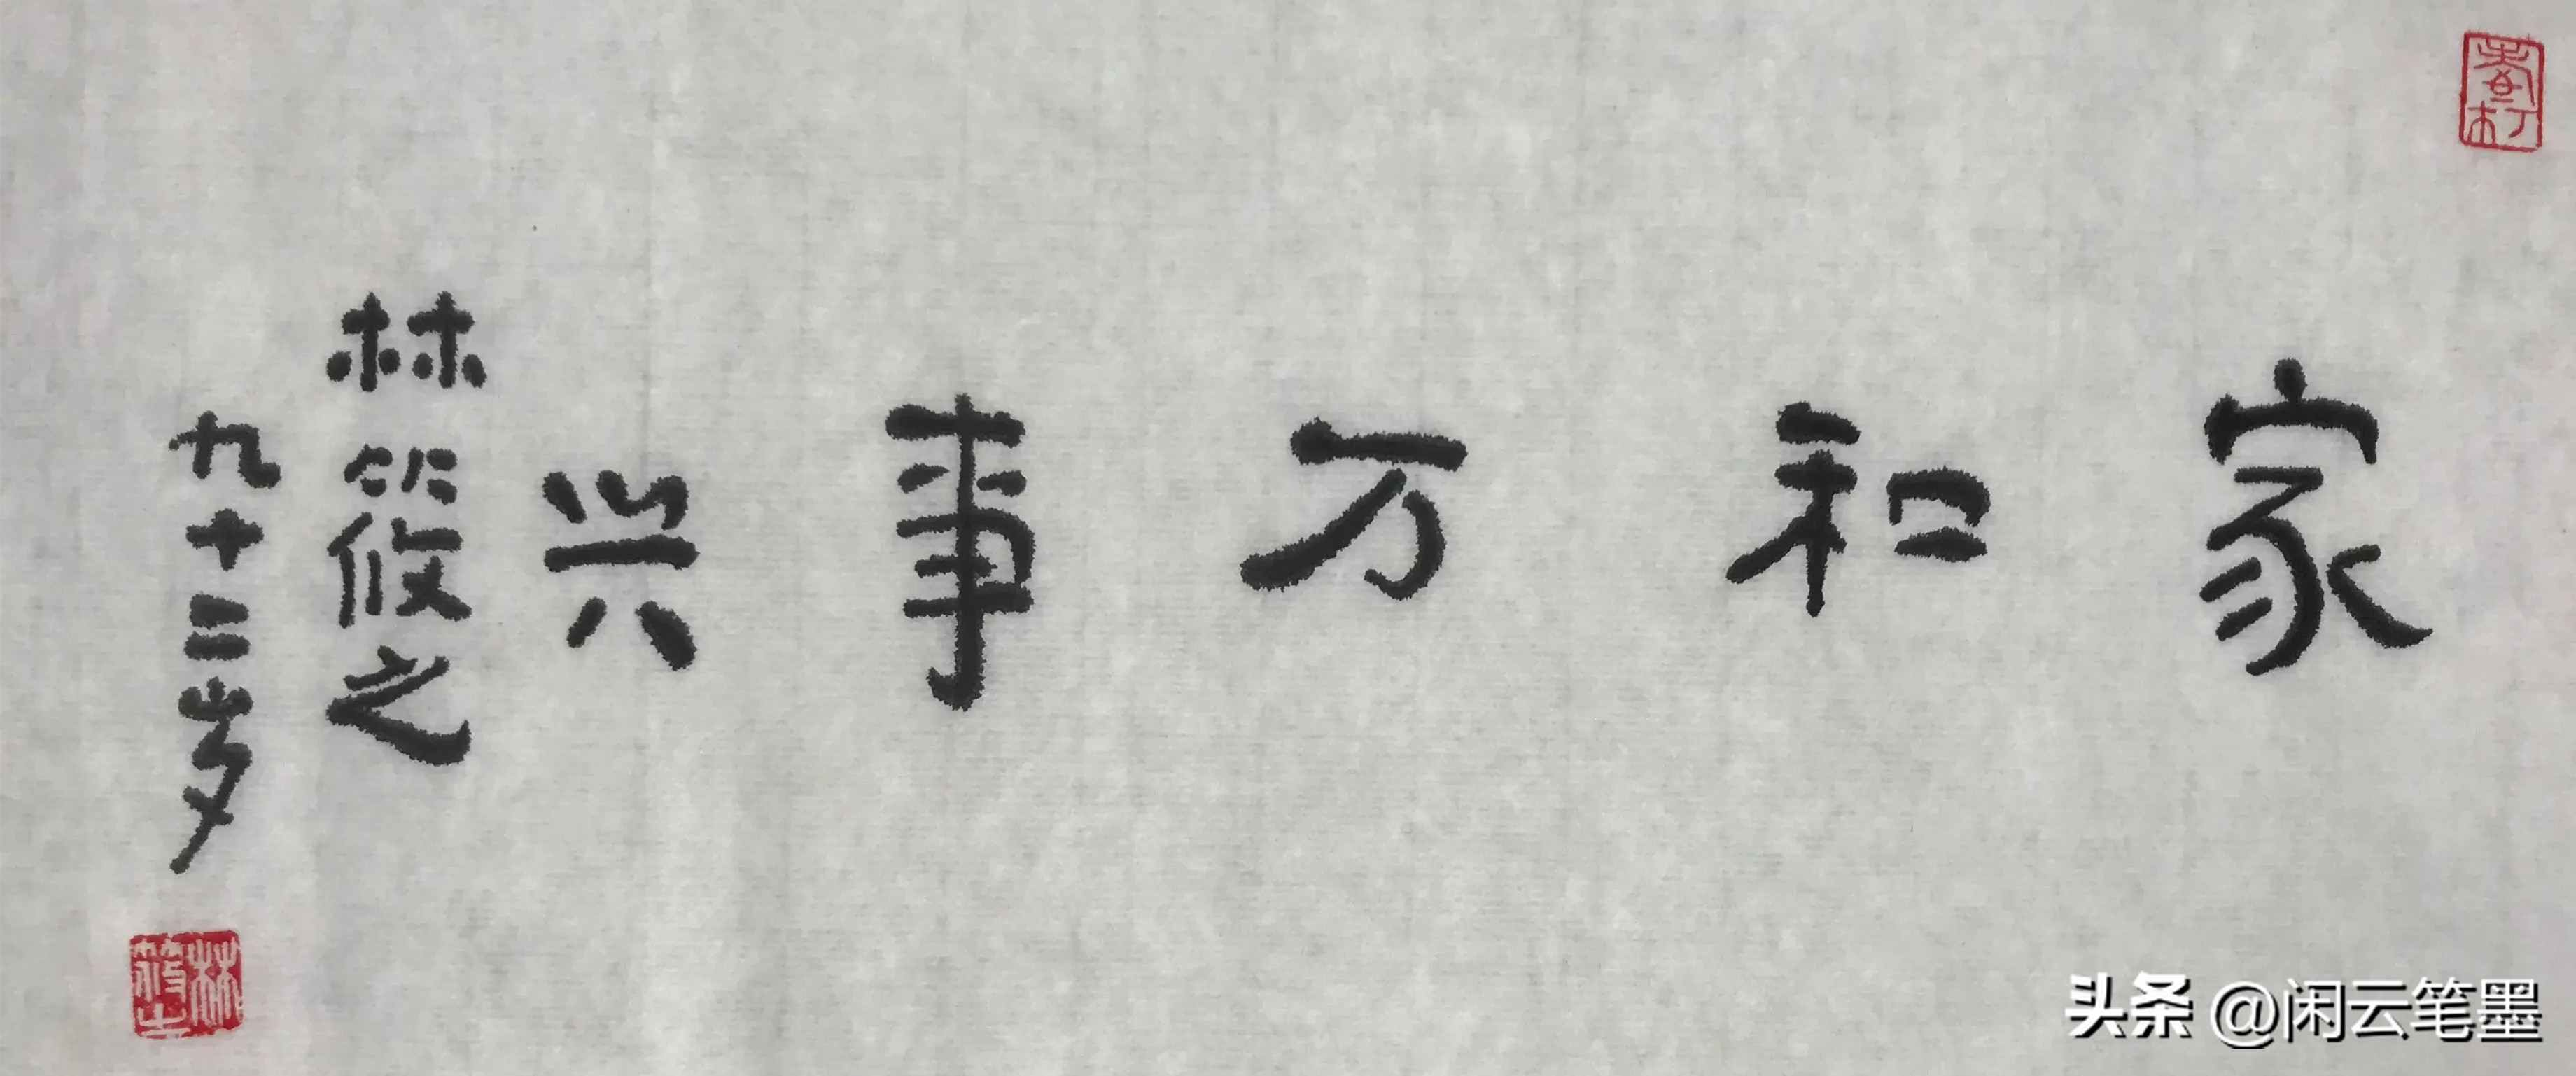 家和万事兴
林筱之
九十二岁
林筱之
头条 @闲云笔墨